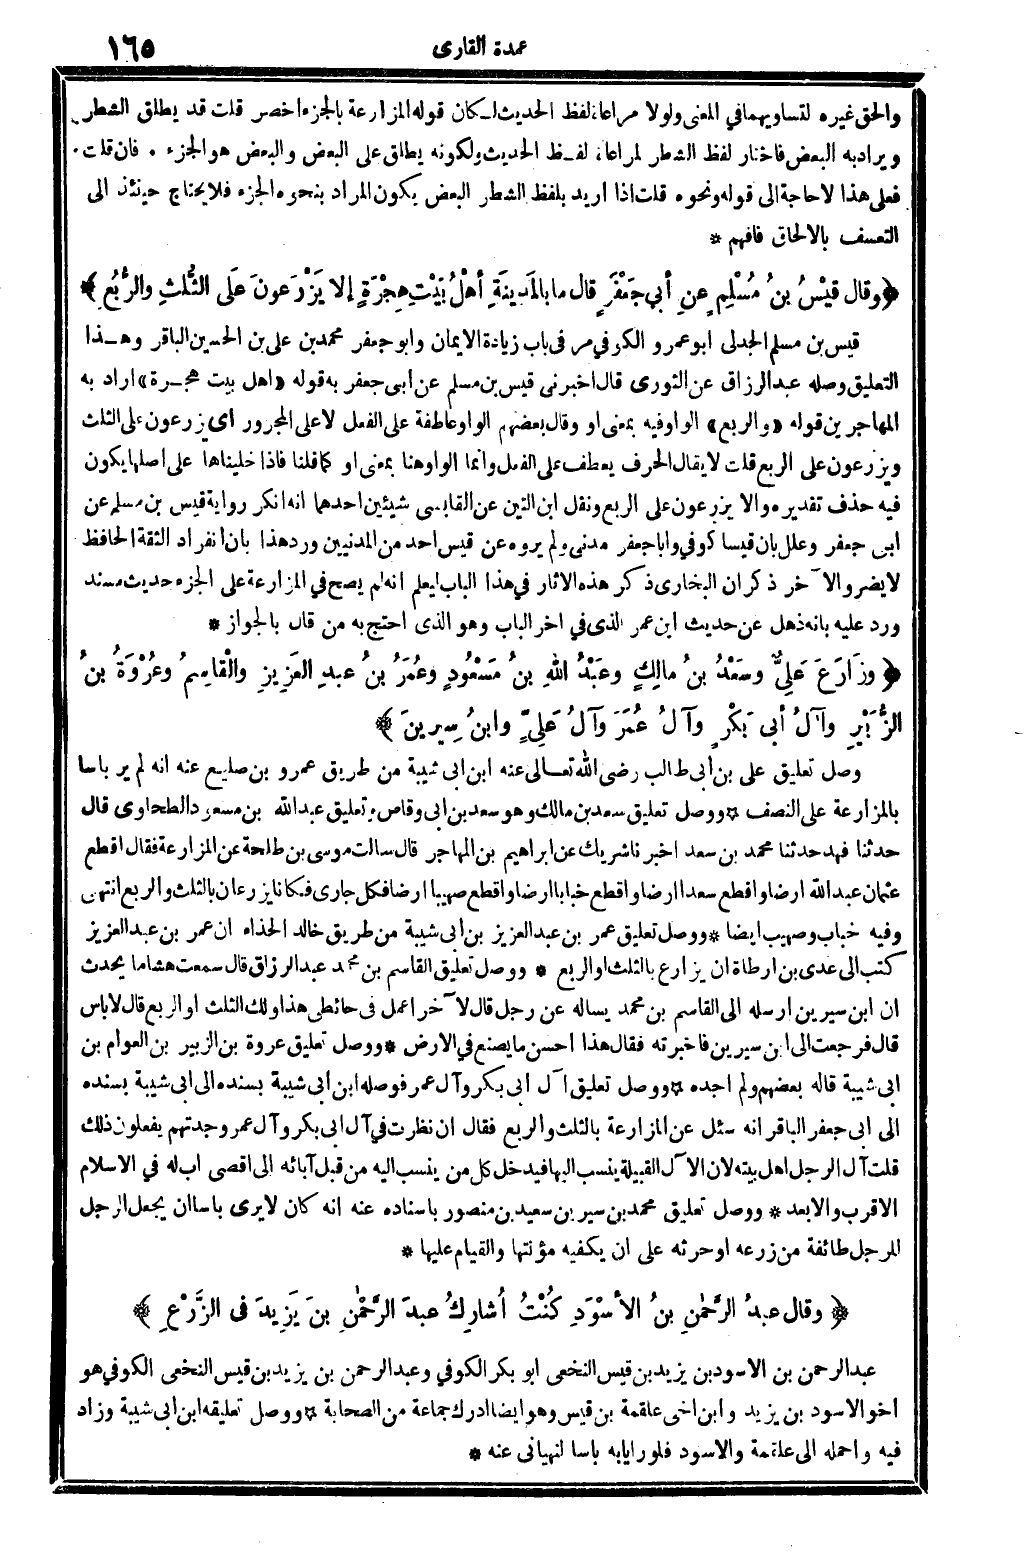 عمدة القارى ١٦٥
والحق غيره لتساويهما في المعنى ولولا مراعاة لفظ الحديث لكان قوله المزارعة بالجزء اخصر قلت قد يطلق الشطر
ويراد به البعض فاختار لفظ الشطر لمراعاة لفظ الحديث ولكونه يطلق على البعض والبعض هو الجزء ٠ فان قلت ٠
فعلى هذا لا حاجة الى قوله ونحوه قلت اذا اريد بلفظ الشطر البعض يكون المراد بنحوه الجزء فلا يحتاج حينئذ الى
التعسف بالالحاق فافهم *
﴿ وقال قَيْسُ بنُ مُسْلِمٍ عن أبي جَعْفَرٍ قال ما بالمَدِينَةِ أهْلُ بَيْتِ هِجْرَةٍ إلا يَزْرَعونَ عَلَى الثُّلثِ والرُّبُعِ ﴾
قيس بن مسلم الجدلى ابو عمرو الكوفي مر فى باب زيادة الايمان وابو جعفر محمد بن على بن الحسين الباقر وهذا
التعليق وصله عبد الرزاق عن الثورى قال اخبرنى قيس بن مسلم عن أبى جعفر به قوله «اهل بيت هجرة» اراد به
المهاجرين قوله «والربع» الواو فيه بمعنى او وقال بعضهم الواو عاطفة على الفعل لا على المجرور اى يزرعون على الثلث
ويزرعون على الربع قلت لا يقال الحرف يعطف على الفعل وانما الواو هنا بمعنى او كما قلنا فاذا خليناها على اصلها يكون
فيه حذف تقديره والا يزرعون على الربع ونقل ابن التين عن القابسى شيئين احدهما انه انكر رواية قيس بن مسلم عن
ابى جعفر وعلل بان قيسا كوفي وابا جعفر مدنى ولم يروه عن قيس احد من المدنيين ورد هذا بان انفراد الثقة الحافظ
لا يضر والآخر ذكر ان البخارى ذكر هذه الاثار في هذا الباب ليعلم انه لم يصح في المزارعة على الجزء حديث مسند
ورد عليه بانه ذهل عن حديث ابن عمر الذى في اخر الباب وهو الذى احتج به من قال بالجواز *
﴿ وزَارَعَ عَلِيٌّ وسَعْدُ بنُ مالِكٍ وعَبْدُ اللهِ بنُ مَسْعُودٍ وعُمَرُ بنُ عبدِ العَزِيزِ والْقاسِمُ وعُرْوَةُ بنُ
الزُّبَيْرِ وآلُ أبى بَكْرٍ وآلُ عُمَرَ وآلُ عَلِيٍّ وابنُ سِيرِينَ ﴾
وصل تعليق على بن أبى طالب رضى الله تعالى عنه ابن ابى شيبة من طريق عمرو بن صليع عنه انه لم ير باسا
بالمزارعة على النصف * ووصل تعليق سعد بن مالك وهو سعد بن ابى وقاص وتعليق عبد الله بن مسعود الطحاوى قال
حدثنا فهد حدثنا محمد بن سعد اخبرنا شريك عن ابراهيم بن المهاجر قال سالت موسى بن طلحة عن المزارعة فقال اقطع
عثمان عبد الله ارضا واقطع سعدا ارضا واقطع خبابا ارضا واقطع صهيبا ارضا فكل جارى فكانا يزرعان بالثلث والربع انتهى
وفيه خباب وصهيب ايضا * ووصل تعليق عمر بن عبد العزيز بن ابى شيبة من طريق خالد الحذاء ان عمر بن عبد العزيز
كتب الى عدى بن ارطاة ان يزارع بالثلث او الربع * ووصل تعليق القاسم بن محمد عبد الرزاق قال سمعت هشاما يحدث
ان ابن سيرين ارسله الى القاسم بن محمد يساله عن رجل قال لآخر اعمل فى حائطى هذا ولك الثلث او الربع قال لا باس
قال فرجعت الى ابن سيرين فاخبرته فقال هذا احسن ما يصنع في الارض * ووصل تعليق عروة بن الزبير بن العوام بن
ابى شيبة قاله بعضهم ولم اجده * ووصل تعليق آل ابى بكر وآل عمر فوصله ابن أبى شيبة بسنده الى ابى شيبة بسنده
الى ابى جعفر الباقر انه سئل عن المزارعة بالثلث والربع فقال ان نظرت في آل ابى بكر وآل عمر وجدتهم يفعلون ذلك
قلت آل الرجل اهل بيته لان الآل القبيلة ينسب اليها فيدخل كل من ينسب اليه من قبل آبائه الى اقصى اب له في الاسلام
الاقرب والابعد * ووصل تعليق محمد بن سيرين سعيد بن منصور باسناده عنه انه كان لا يرى باسا ان يجعل الرجل
للرجل طائفة من زرعه او حرثه على ان يكفيه مؤنتها والقيام عليها *
﴿ وقال عبدُ الرَّحْمٰنِ بنُ الأسْوَدِ كُنْتُ أُشارِكُ عبدَ الرَّحْمٰنِ بنَ يَزِيدَ فى الزَّرْعِ ﴾
عبد الرحمن بن الاسود بن يزيد بن قيس النخعى ابو بكر الكوفي وعبد الرحمن بن يزيد بن قيس النخعى الكوفي هو
أخو الاسود بن يزيد وابن اخى علقمة بن قيس وهو ايضا ادرك جماعة من الصحابة * ووصل تعليقه ابن ابى شيبة وزاد
فيه واحمله الى علقمة والاسود فلو رايا به باسا لنهيانى عنه *